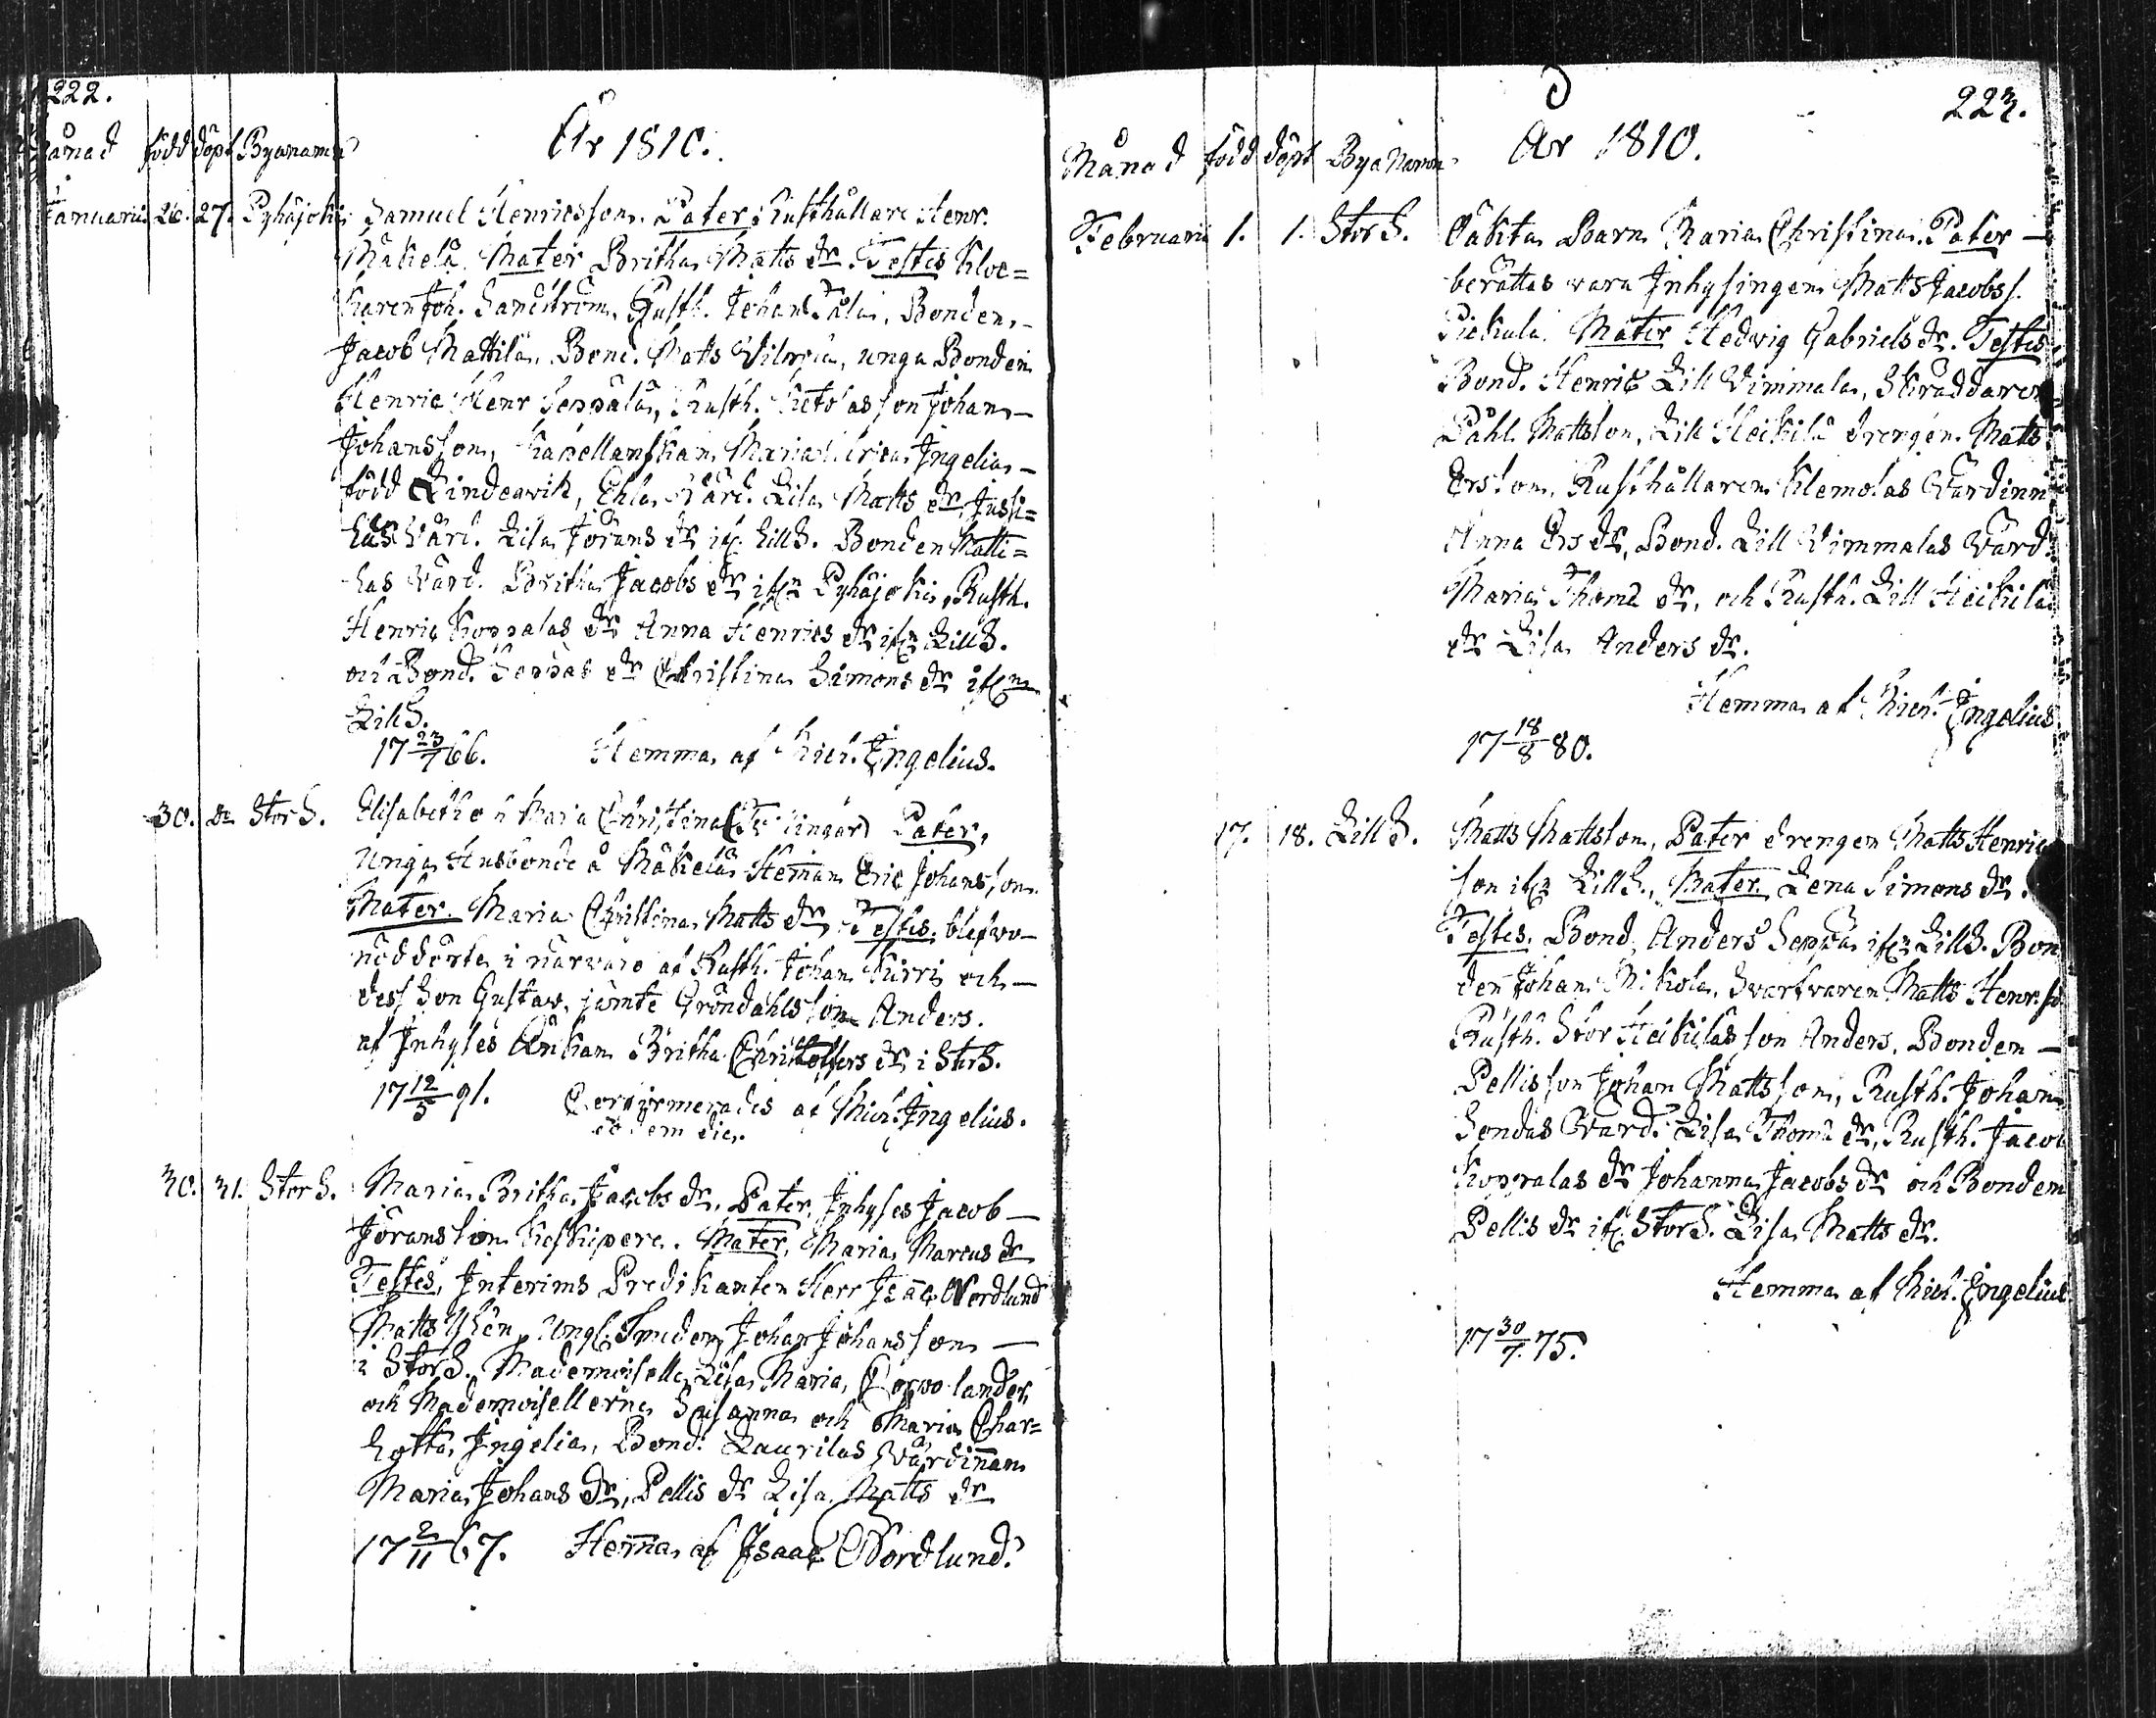 222.
Månad född döpt Byanamn
År 1810.
Januarii 26. 27. Pyhäjoki Samuel Henricsson. Pater: Rusthållare Henr.
Mäkelä. Mater Britha Matts dr. Testes Kloc=
karen Joh. Sandström, Rusth. Johan Bonden
Jacob Mattila, Bond. Matts unga Bonden
Henric Henr Seppälä, Rusth. Ketolas son Johan
Johansson, Kapellanskan Maria Ingelia
född Lisa Matts dr, Jussi=
las Värd. Lisa Jörans dr ifr. LillS. Bonden Matti=
las Värd. Britha Jacobs dr ifrn Pyhäjoki, Rusth.
Henric Koppalas dr Anna Henrics dr ifrn LillS.
och Bond. Seppäs dr Christina Simons dr ifrn
LillS.
17 23/7 66. Hemma af Mich. Ingelius.
30. StorS. Elisabeth och Maria Christina Pater,
Unga Husbonde å Mäkelä Heman Eric Johansson.
Mater. Maria Christina Matts dr Testes. blefvo
nöddöpte i närvaro af Rusth. Johan Kirri och
dess Son Gustav, jämte Gröndahls son Anders.
af Inhyses Änkan Britha Christoffers dr i StorS.
17 12/5 91. Confirmerades af Mich. Ingelius.
eodem die.
30. 31. StorS. Maria Britha Jacobs dr. Pater, Inhyses Jacob
Jöransson Mater, Maria Marcus dr
Testes, Interims Predikanten Herr Isaac Nordlund
Matts Ungl. Johan Johansson
i StorS. Mademoiselle Lisa Maria,
och Mademoisellerne Susanna och Maria Char=
lotta Ingelia, Bond. Laurilas Värdinnan
Maria Johans dr, Pellis dr Lisa Matts dr
17 2/11 67. Hemma af Isaac Nordlund.
223.
Månad född döpt Byanamn År 1810.
Februarii 1. 1. StorS. Oäkta Barn Maria Christina. Pater
berättas vara Inhysingen Matts Jacobss.
Mater Hedvig Gabriels dr. Testes
Bond. Henric Lill Vimmala, Skräddaren
Påhl Mattsson, Lill Heikilä drengen Matts
Ersson, Rusthållaren Klemolas Värdinn
Anna Ers dr, Bond. Lill Vimmalas Värd.
Maria Thoma dr, och Rusth. Lill Heikilä
dr Lisa Anders dr.
Hemma af Mich. Ingelius
17 18/8 80.
17. 18. LillS. Matts Mattsson, Pater drengen Matts Henric
son ifrn LillS., Mater Lena Simons dr.
Testes. Bond. Anders Seppä ifrn LillS. Bon
den Johan Mikola, Svarfvaren Matts Henr.
Rusth. Stor Heikiläs son Anders, Bonden
Pellis son Johan Mattsson, Rusth. Johan
Sondas Värd. Lisa Thoma dr, Rusth. Jacob
Koppalas dr Johanna Jacobs dr och Bonden
Pellis dr ifr. StorS. Lisa Matts dr.
Hemma af Mich. Ingelius
17 30/7 75.